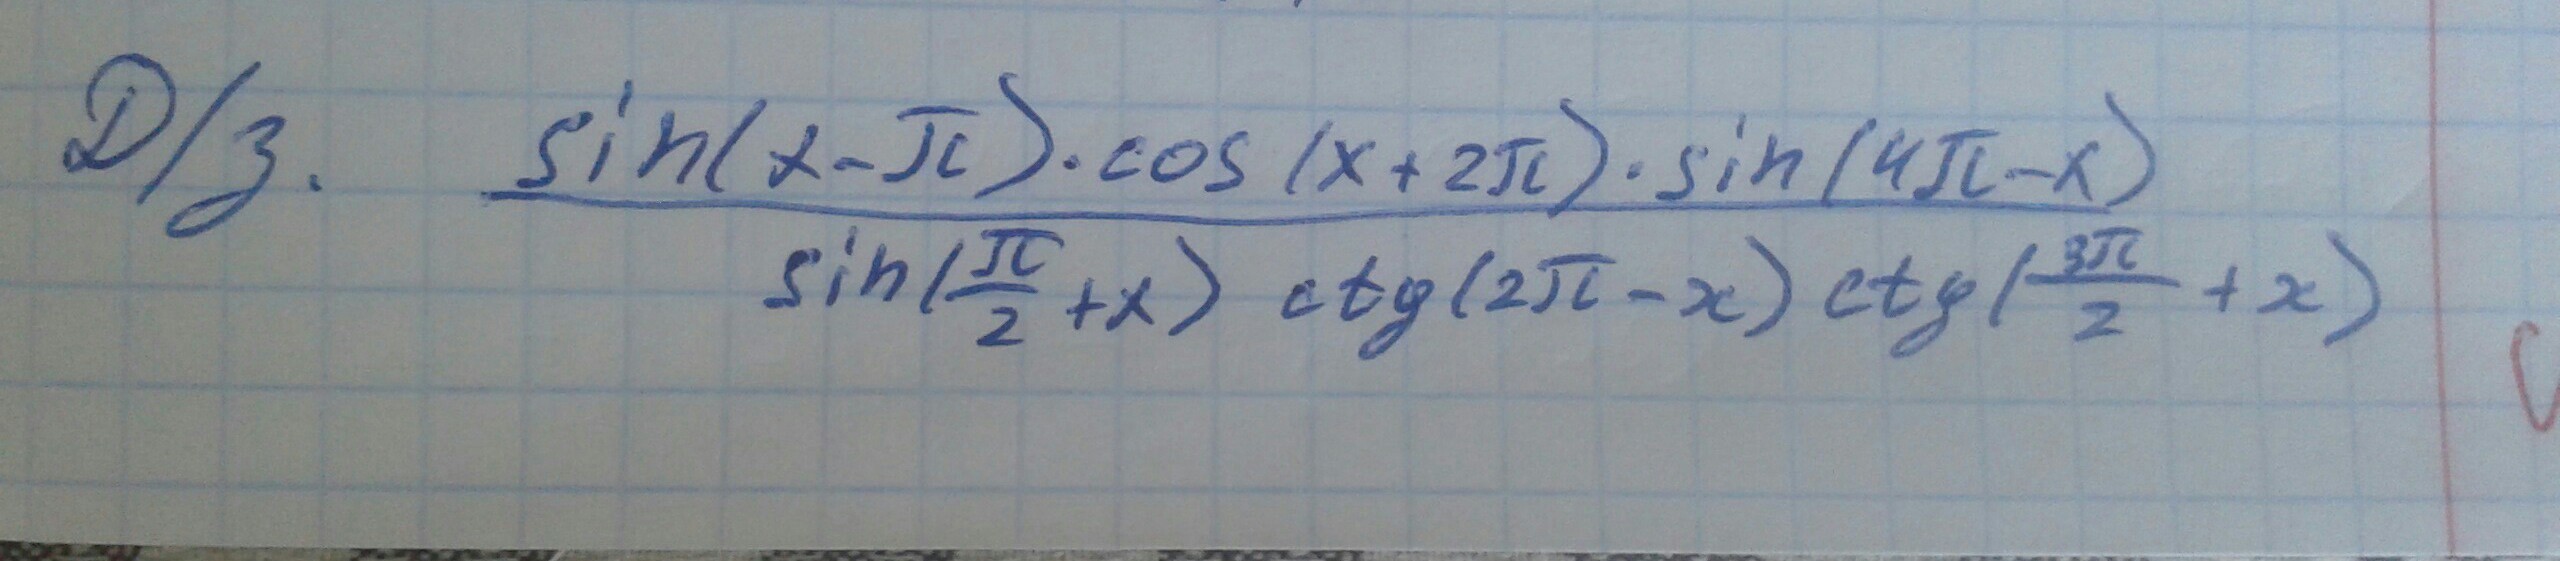 D/з. sin(x-π)·cos(x+2π)·sin(4π-x)
sin(π/2+x) ctg(2π-x) ctg(3π/2+x)